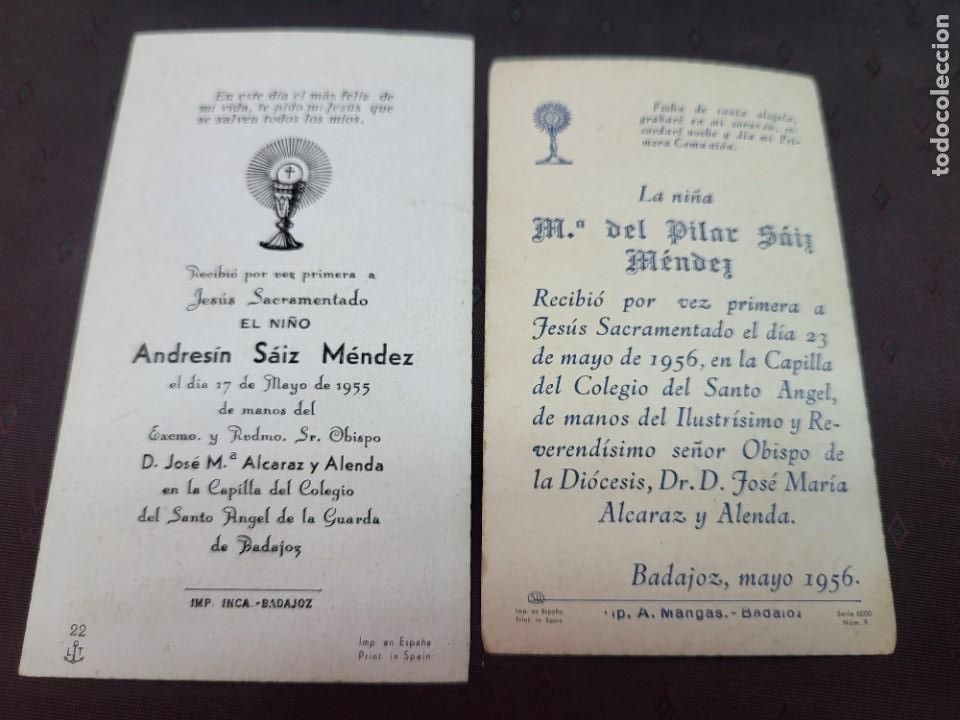 En este día el más feliz de
mi vida, te pido mi Jesús que
se salven todos los míos.
Recibió por vez primera a
Jesús Sacramentado
EL NIÑO
Andresín Sáiz Méndez
el dia 17 de Mayo de 1955
de manos del
Excmo. y Rvdmo. Sr. Obispo
D. José M.ª Alcaraz y Alenda
en la Capilla del Colegio
del Santo Angel de la Guarda
de Badajoz
IMP. INCA.-BADAJOZ
22
L T
Imp. en España
Print. in Spain
Fecha de tanta alegría,
grabaré en mi corazón, re-
cordaré noche a día mi Pri-
mera Comunión.
La niña
M.ª del Pilar Sáiz
Méndez
Recibió por vez primera a
Jesús Sacramentado el día 23
de mayo de 1956, en la Capilla
del Colegio del Santo Angel,
de manos del Ilustrísimo y Re-
verendísimo señor Obispo de
la Diócesis, Dr. D. José María
Alcaraz y Alenda.
Badajoz, mayo 1956.
Imp. en España
Print. in Spain
Ip. A. Mangas.- Badajoz
Serie 6000
Núm. 9
todocoleccion